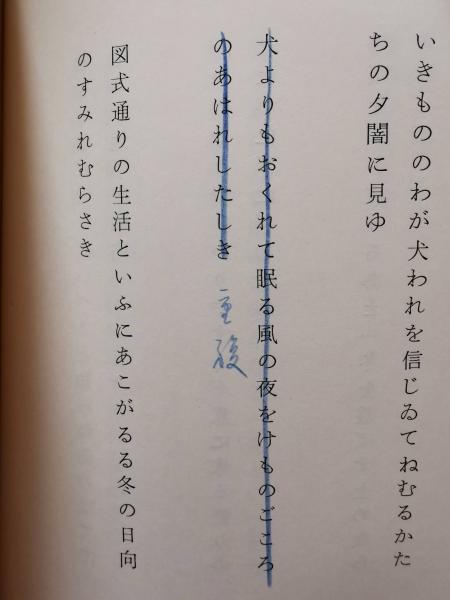 いきもののわが犬われを信じゐてねむるかた
ちの夕闇に見ゆ
犬よりもおくれて眠る風の夜をけものごころ
のあはれしたしき
重複
図式通りの生活といふにあこがるる冬の日向
のすみれむらさき